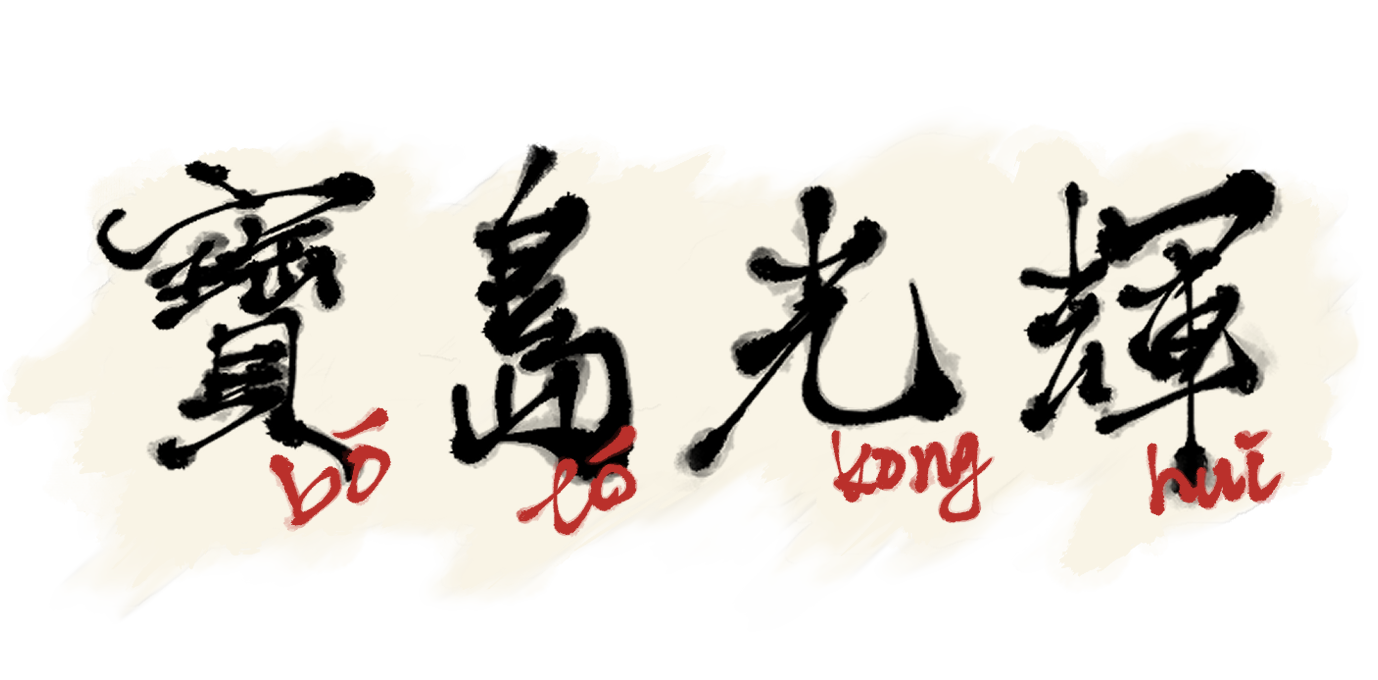 寶島光輝
bó tó kong hui